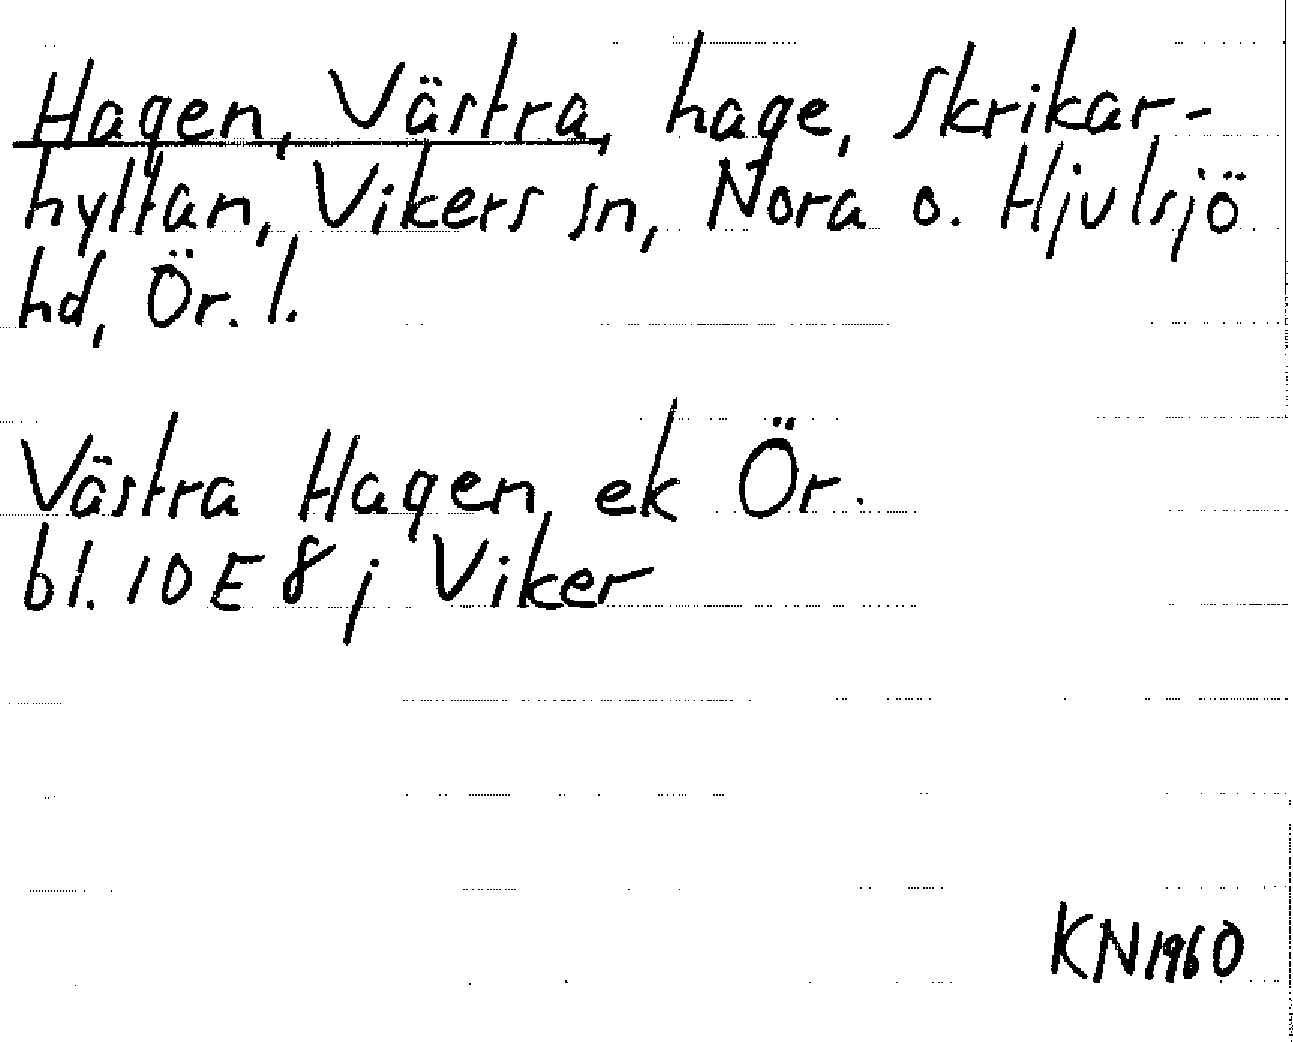 Hagen, Västra, hage, Skrikar-
hyttan, Vikers sn, Nora o. Hjulsjö
hd, Ör. l.
Västra Hagen, ek Ör.
bl. 10 E 8 j Viker
KN 1960